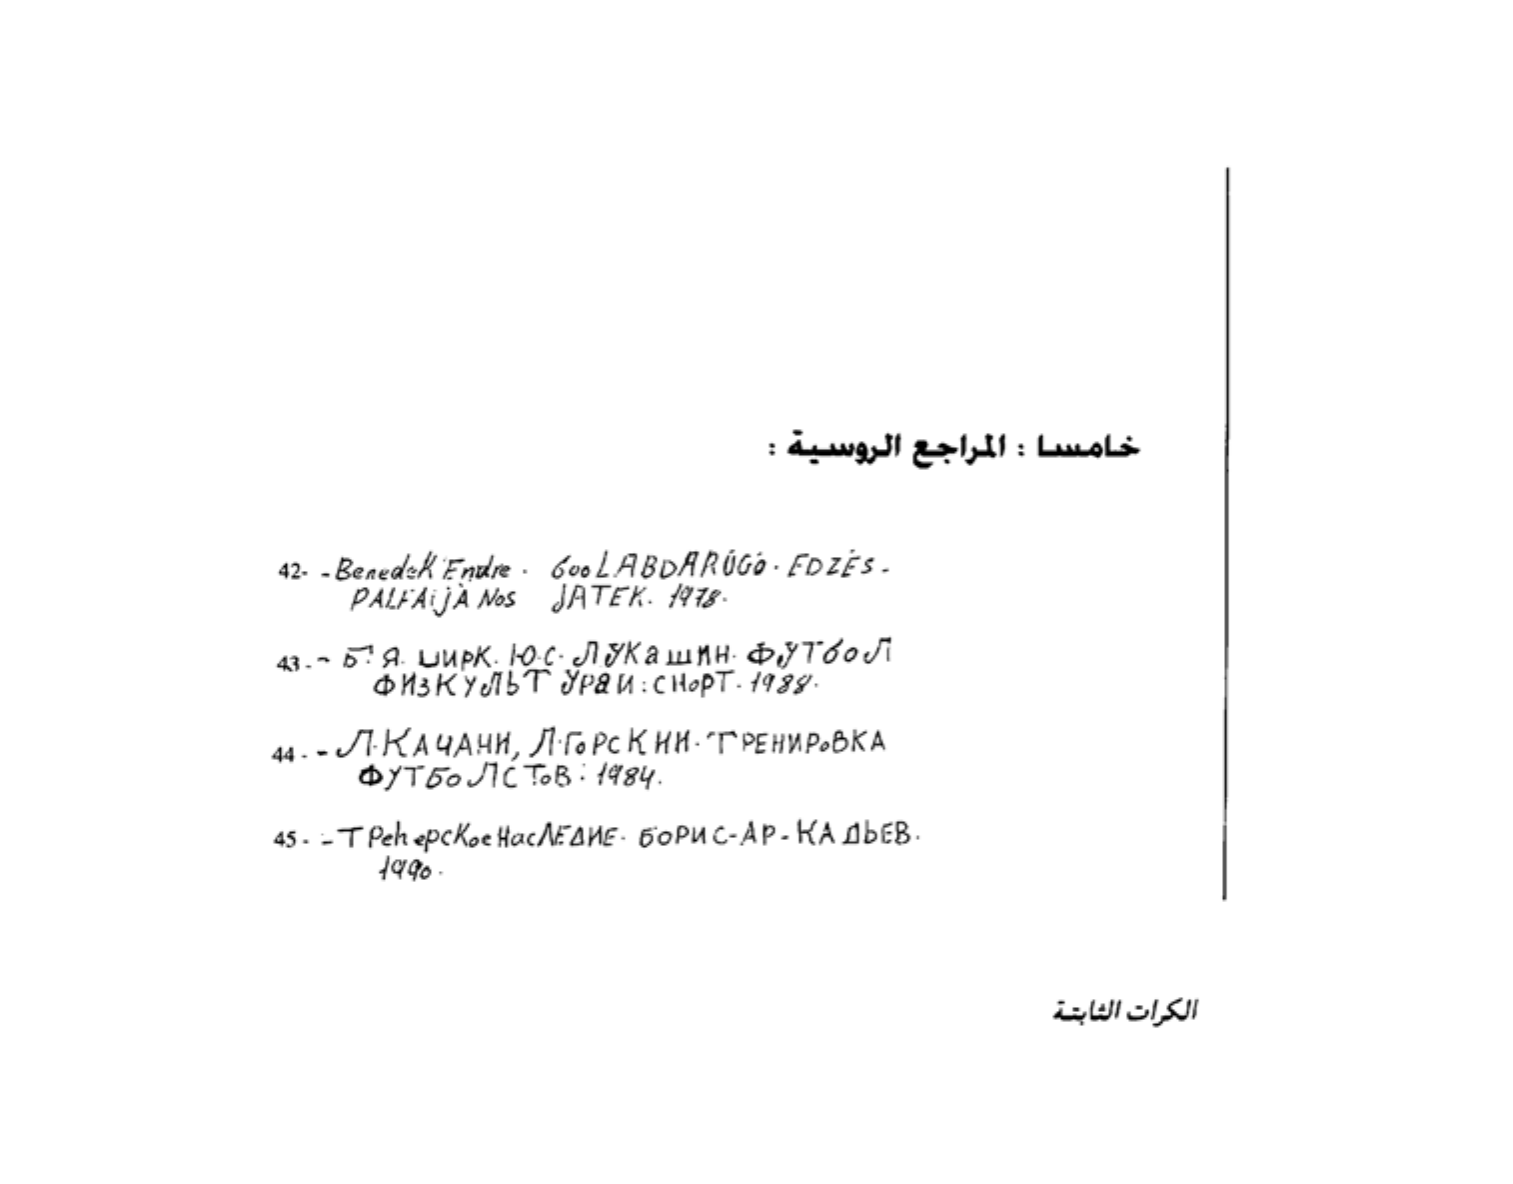 خامسا : المراجع الروسية :
42- - Benedek Endre . 600 LABDARÚGÓ . EDZÉS -
PALFAI JÀNos JATEK. 1978.
43 - - Б. Я. ЦИРК. Ю.С. ЛУКаШИН. ФУТбоЛ
ФИЗКУЛЬТ УРаИ : СПоРТ. 1988.
44 - - Л. КАЧАНИ, Л. ГоРСКИИ. ТРЕНИРоВКА
ФУТБоЛСТоВ : 1984.
45 - - ТРенерское НасЛЕДИЕ. БОРИС-АР-КАДЬЕВ.
1990.
الكرات الثابتة